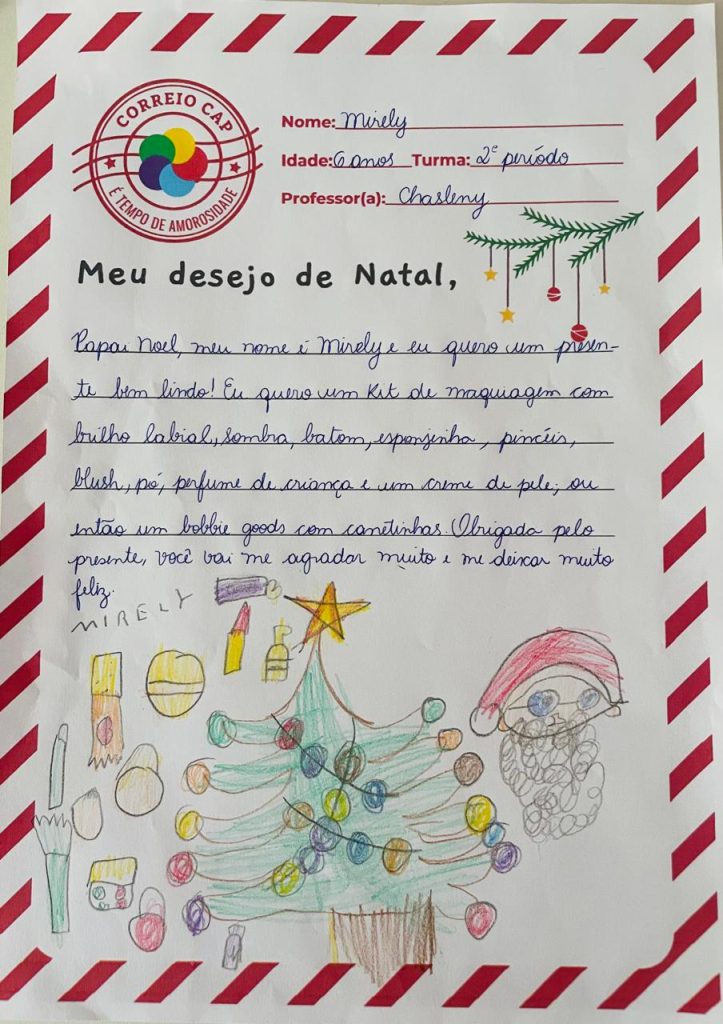 CORREIO CAP
É TEMPO DE AMOROSIDADE
Nome: Mirely
Idade: 6 anos Turma: 2º período
Professor(a): Chasleny
Meu desejo de Natal,
Papai Noel, meu nome é Mirely e eu quero um presen-
te bem lindo! Eu quero um Kit de maquiagem com
brilho labial, sombra, batom, esponjinha, pincéis,
blush, pó, perfume de criança e um creme de pele; ou
então um bobbie goods com canetinhas. Obrigada pelo
presente, você vai me agradar muito e me deixar muito
feliz.
MIRELY